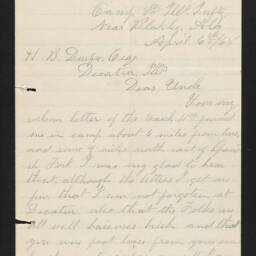 Camp 8th Ill. Infty
Near Blakely, Ala
April 6th/65
H. B. Durfee Esq
Decatur, Ills
Dear Uncle
Your very
welcom letter of the March found
me in camp about 6 miles from here,
and some 7 miles north east of Spani
sh Fort I was very glad to hear
that, although the letters I get are
few that I am not forgotten at
Decatur also that the Folks are
all well business brisk and that
you were